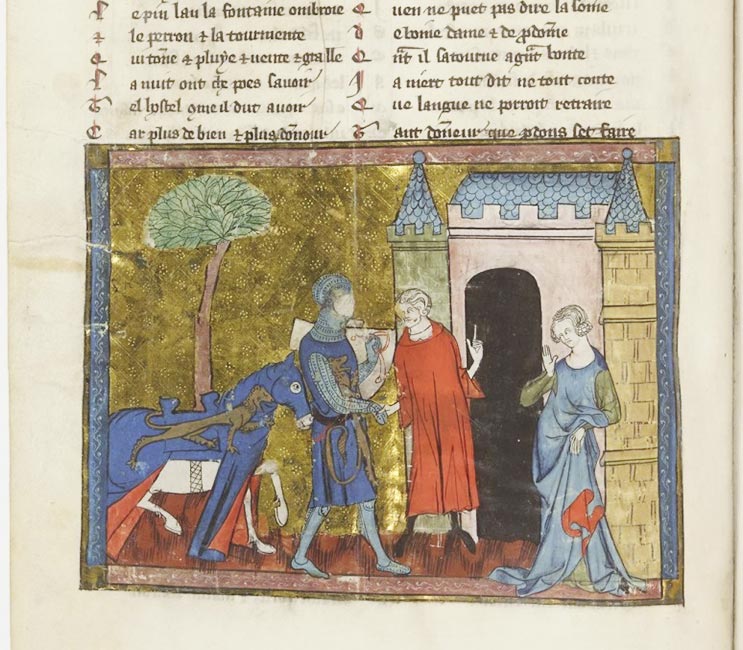 L e pin lau la fontaine ombroie
⁊ le perron ⁊ la tourmente
Q ui tone ⁊ pluye ⁊ uente ⁊ gralle
L a nuit ont che poes sauoir
T el hostel qme il dut auoir
C ar plus de bien ⁊ plus donnour
Q uen ne puet pas dire la some
d e bone dame ⁊ de pdome
Q nt il satourne a gnt bonte
J a niert tout dit ne tout conte
Q ue langue ne porroit retraire
T ant donneur que pdons set faire